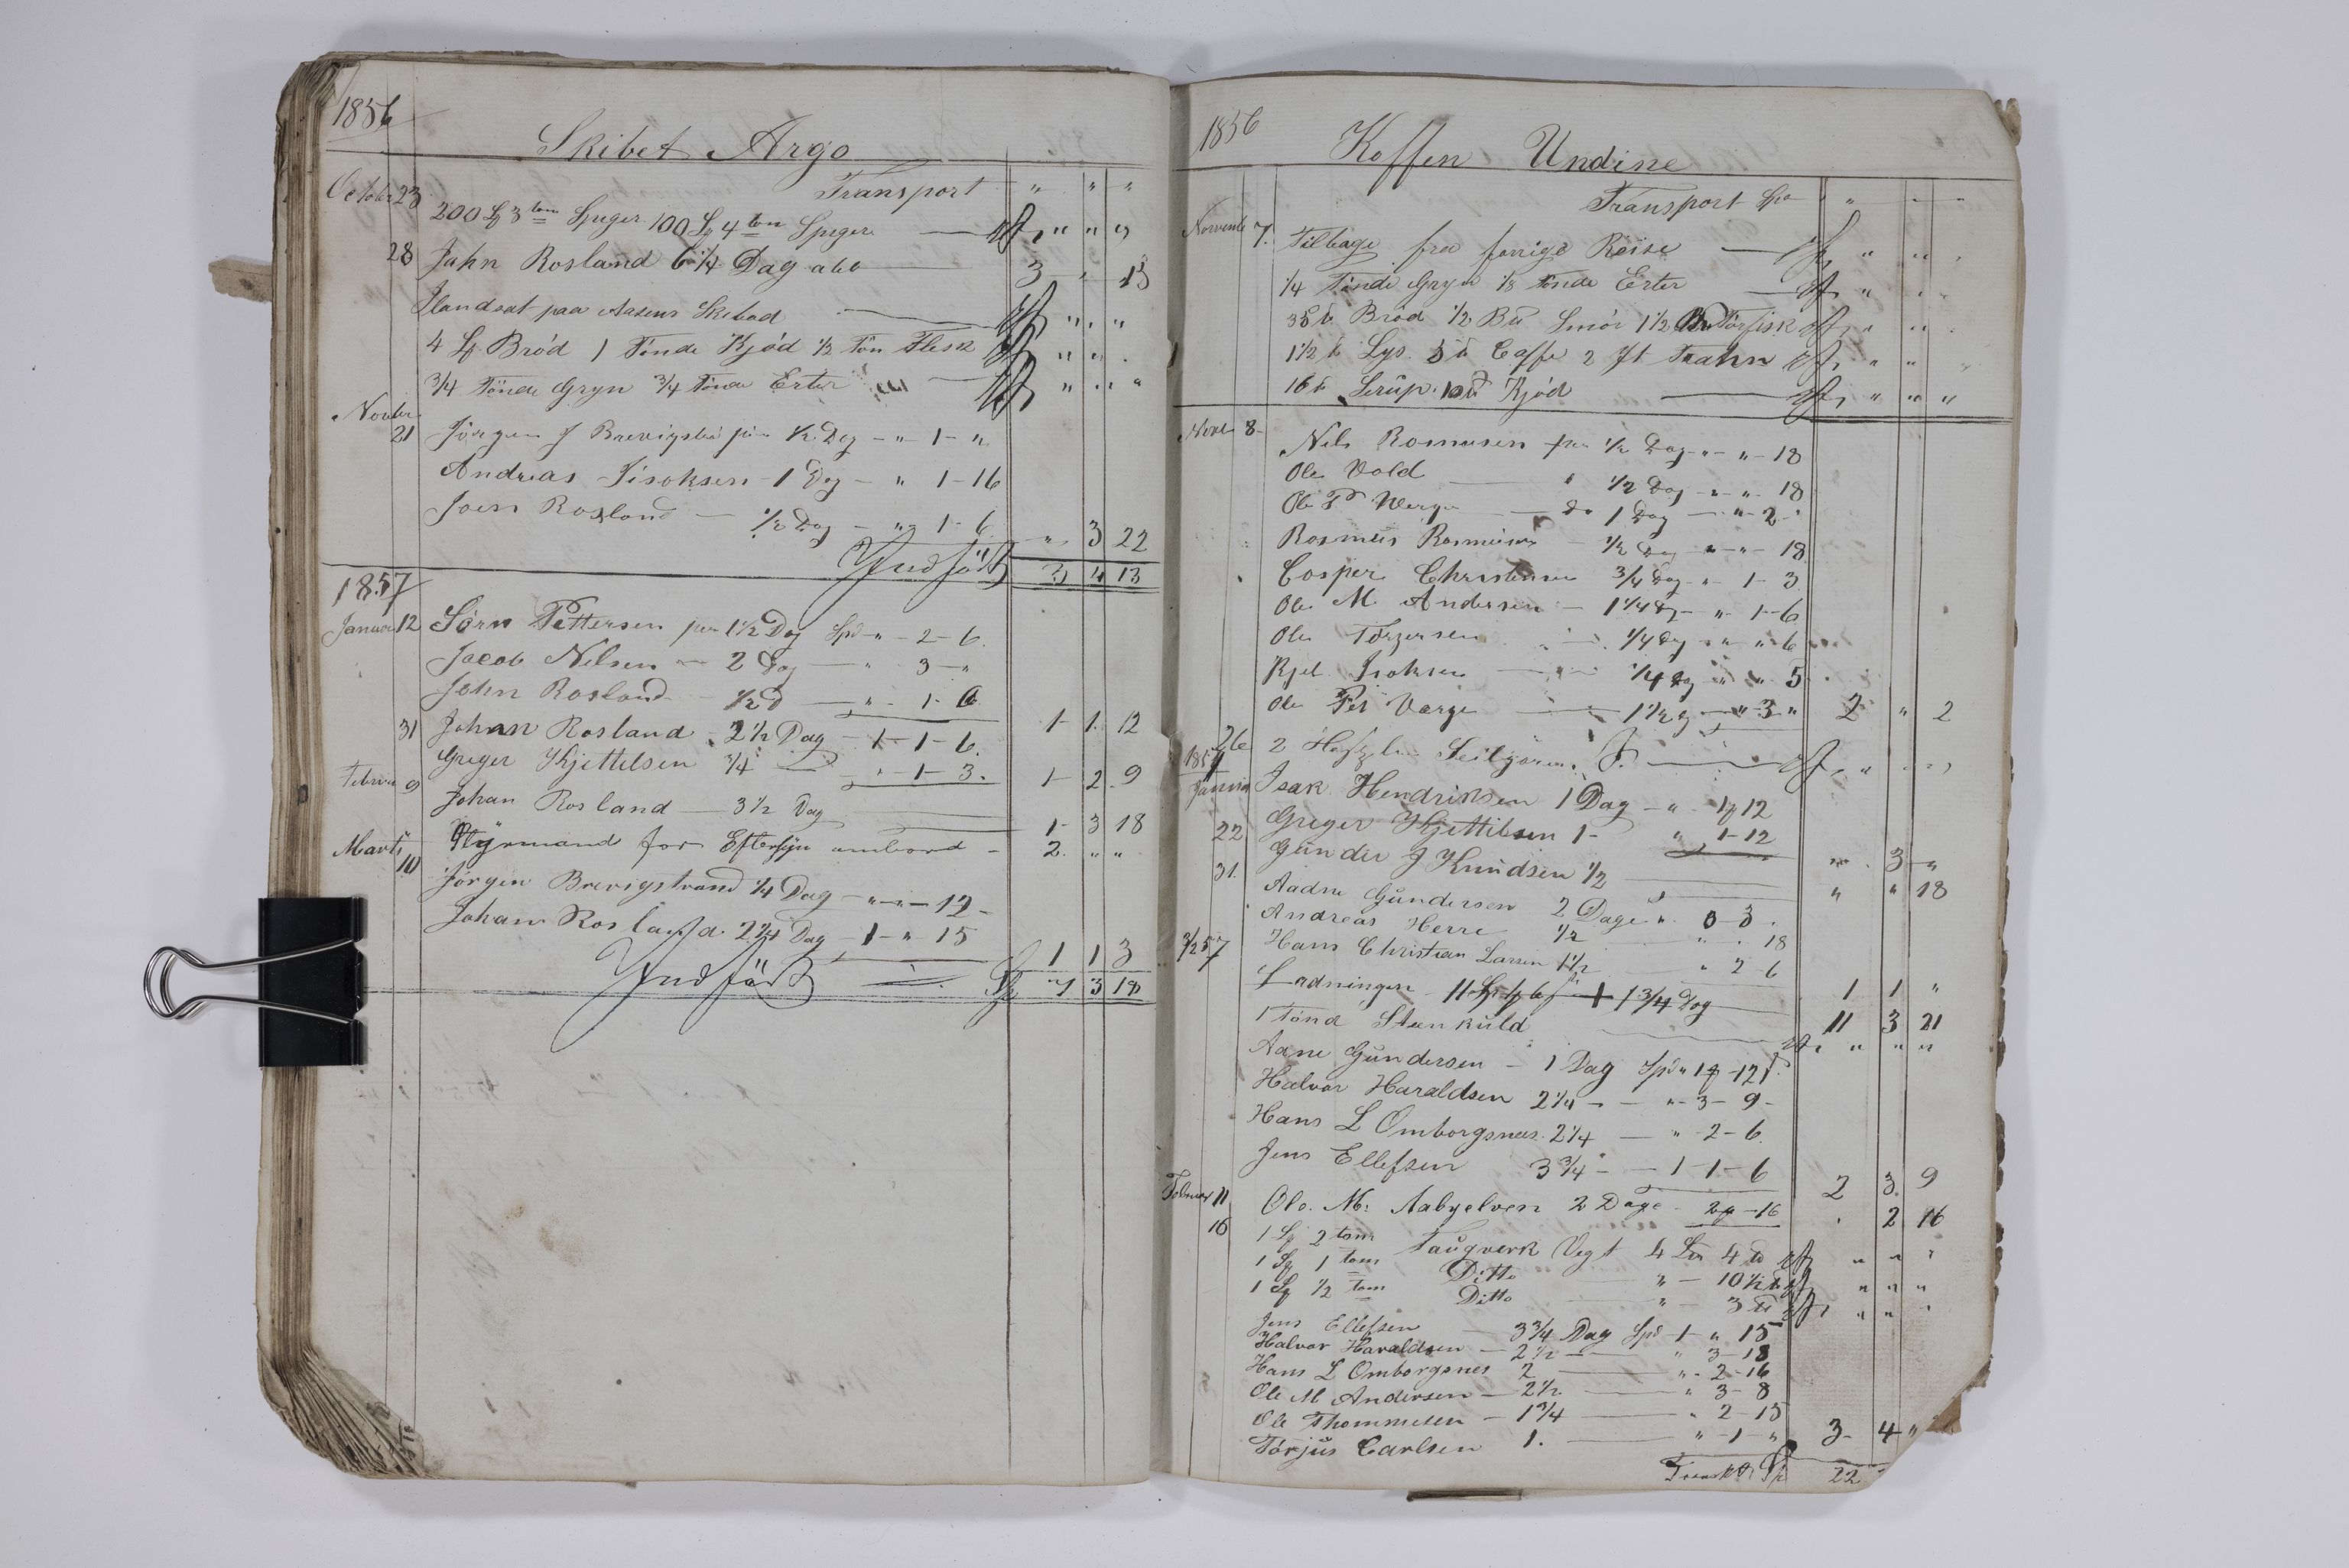 1856
Skibet Argo
October 23 Transport " " "
200 3 tom Spiger 100 4 tom Spiger " " "
28 Jahn Rosland 6 1/4 Dag 3 " 13
Ilandsat paa Aasens Skibad " " "
4 Bröd 1 Tönde Kjöd 1/2 Tön Flesk " "
3/4 Tönde Gryn 3/4 Tönde Erter " " "
Novbr
21 Jörgen 1/2 Dag - " 1 - "
Andreas Isoksen - 1 Dag - " 1-16
Joen Rosland - 1/2 Dag - " 1-6 " 3 22
Indfört 3 4 13
1857
Januar 12 Sörn Pettersen 1 1/2 Dag Spd " - 2 - 6
Jacob Nelsen - 2 Dag - " 3 - "
John Rosland - 1/2 d - " - 1 - 6 1 - 1. 12
31 Johan Rosland 2 1/2 Dag - 1 - 1 - 6.
Greger Kjettelsen 3/4 - " - 1 - 3. 1 - 2 9
Februar 9 Johan Rosland - 3 1/2 Dag 1 - 3 18
Marts Styrmand for Eftersÿn ombord - 2. " "
10 Jörgen Brevigstrand 1/4 Dag - " - " - 12 -
Johan Rosland 2 1/4 Dag - 1 - " 15 1 1 3
Indfört 7 3 18
1856
Koffen Undine
Transport Spd " " "
Novembr 7. Tilbage fra forrige Reise " "
1/4 Tönde Gryn 1/8 Tönde Erter "
Bröd 1/2 Bu Smör 1 1/2 Törfisk " "
1 1/2 Lys 5 Caffe 2 Trahn " "
16 Serüp 10 Kjöd " " "
Novr 8 - Nels Rasmusen 1/2 Dag - " - " - 18
Ole Vold 1/2 Dag - " - " - 18
Ole P Werge do 1 Dag - " - 2 -
Rasmus Rasmusen 1/2 Dag " - " - 18
Casper Christensen 3/4 Dag " - 1 - 3
Ole M Andersen - 1 1/4 Dg - " - 1 - 6
Ole Torgersen 1/4 Dag " " - 6
Kjel Isoksen 1/4 Dag " " 5
Ole Per Varge 1 1/2 Dg " 3 " 2 " 2
26 2 Seilgarn "
1857
Januar Isak Hendriksen 1 Dag - " - 1 12
22 Greger Kjettelsen 1 - " 1 - 12 " 3 "
31. Gunder J Knudsen 1/2 " " 18
Aadne Gundersen 2 Dage " 3 - 3
Andreas Herre 1/2 " 18
3/2 57 Hans Christian Larsen 1 1/2 " 2 - 6 1 1 "
Ladningen 1 3/4 Dag 11 3 21
1 Tönd Steenkuld " " "
Aane Gundersen - 1 Dag Spd " 1 - 12
Halvor Haraldsen 2 1/4 - - " - 3 - 9 -
Hans L Omborgsnes 2 1/4 - " - 2 - 6
Jens Ellefsen 3 3/4 - - 1 - 1 - 6 2 3 9
Februar 11 Ole M: Aabyelven 2 Dage - 2 - 16 2 16
16 1 2 tom Taugverk Vegt 4 4 " " "
1 1 tom Ditto " - 10 1/2 " " "
1 1/2 tom Ditto " - 3 " " "
Jens Ellefsen 3 3/4 Dag Spd 1 " 15
Halvor Haraldsen - 2 1/2 " 3 - 18
Hans L Omborgsnes 2 " - 2 - 16
Ole M Andersen - 2 1/2 " 3 - 8
Ole Thommesen - 1 3/4 " 2 - 15
Törjus Carlsen 1. " - 1 - " 3 - 4 "
Transport 22